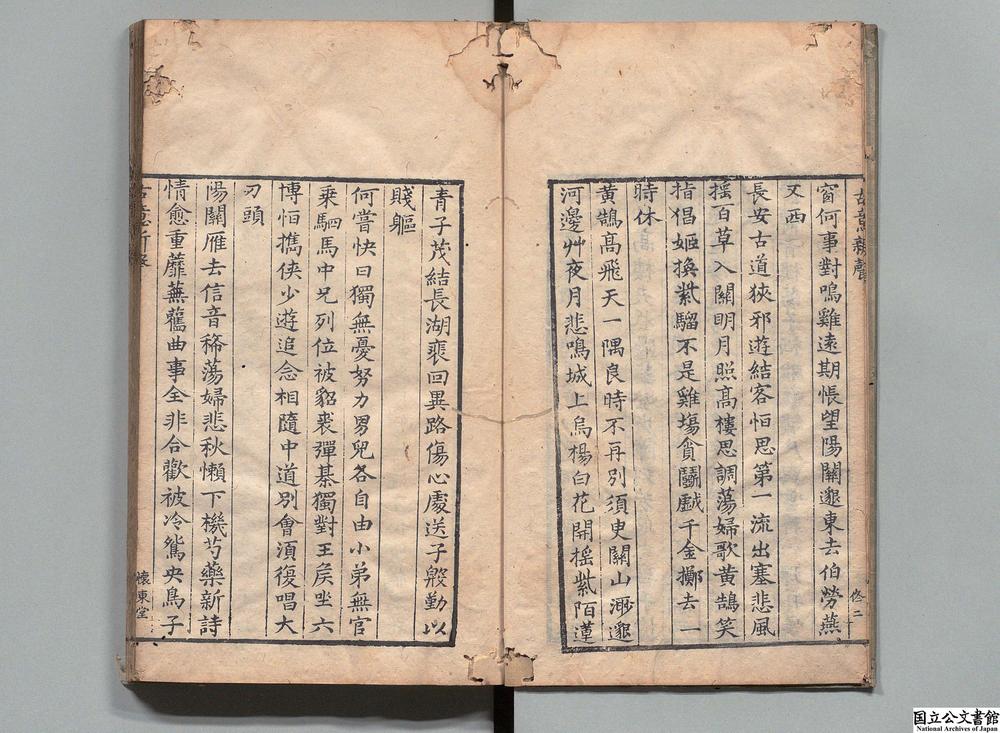 古意新聲
佟二
窗何事對鳴雞遠期悵望陽關邈東去伯勞燕
又西
長安古道狹邪遊結客恒思第一流出塞悲風
搖百草入關明月照高樓思調蕩婦歌黃鵠笑
指倡姬換紫騮不是雞塲貪鬭戱千金擲去一
時休
黃鵠高飛天一隅良時不再別須臾關山渺邈
河邊艸夜月悲鳴城上烏楊白花開搖紫陌蓮
青子茂結長湖裵回異路傷心處送子慇勤以
賤軀
何嘗快日獨無憂努力男兒各自由小弟無官
乘駟馬中兄列位被貂裘彈棊獨對王矦坐六
博恒擕俠少遊追念相隨中道別會須復唱大
刀頭
陽關雁去信音稀蕩婦悲秋懶下機芍藥新詩
情愈重蘼蕪舊曲事全非合歡被冷鴛央鳥子
懷東堂
国立公文書館
National Archives of Japan